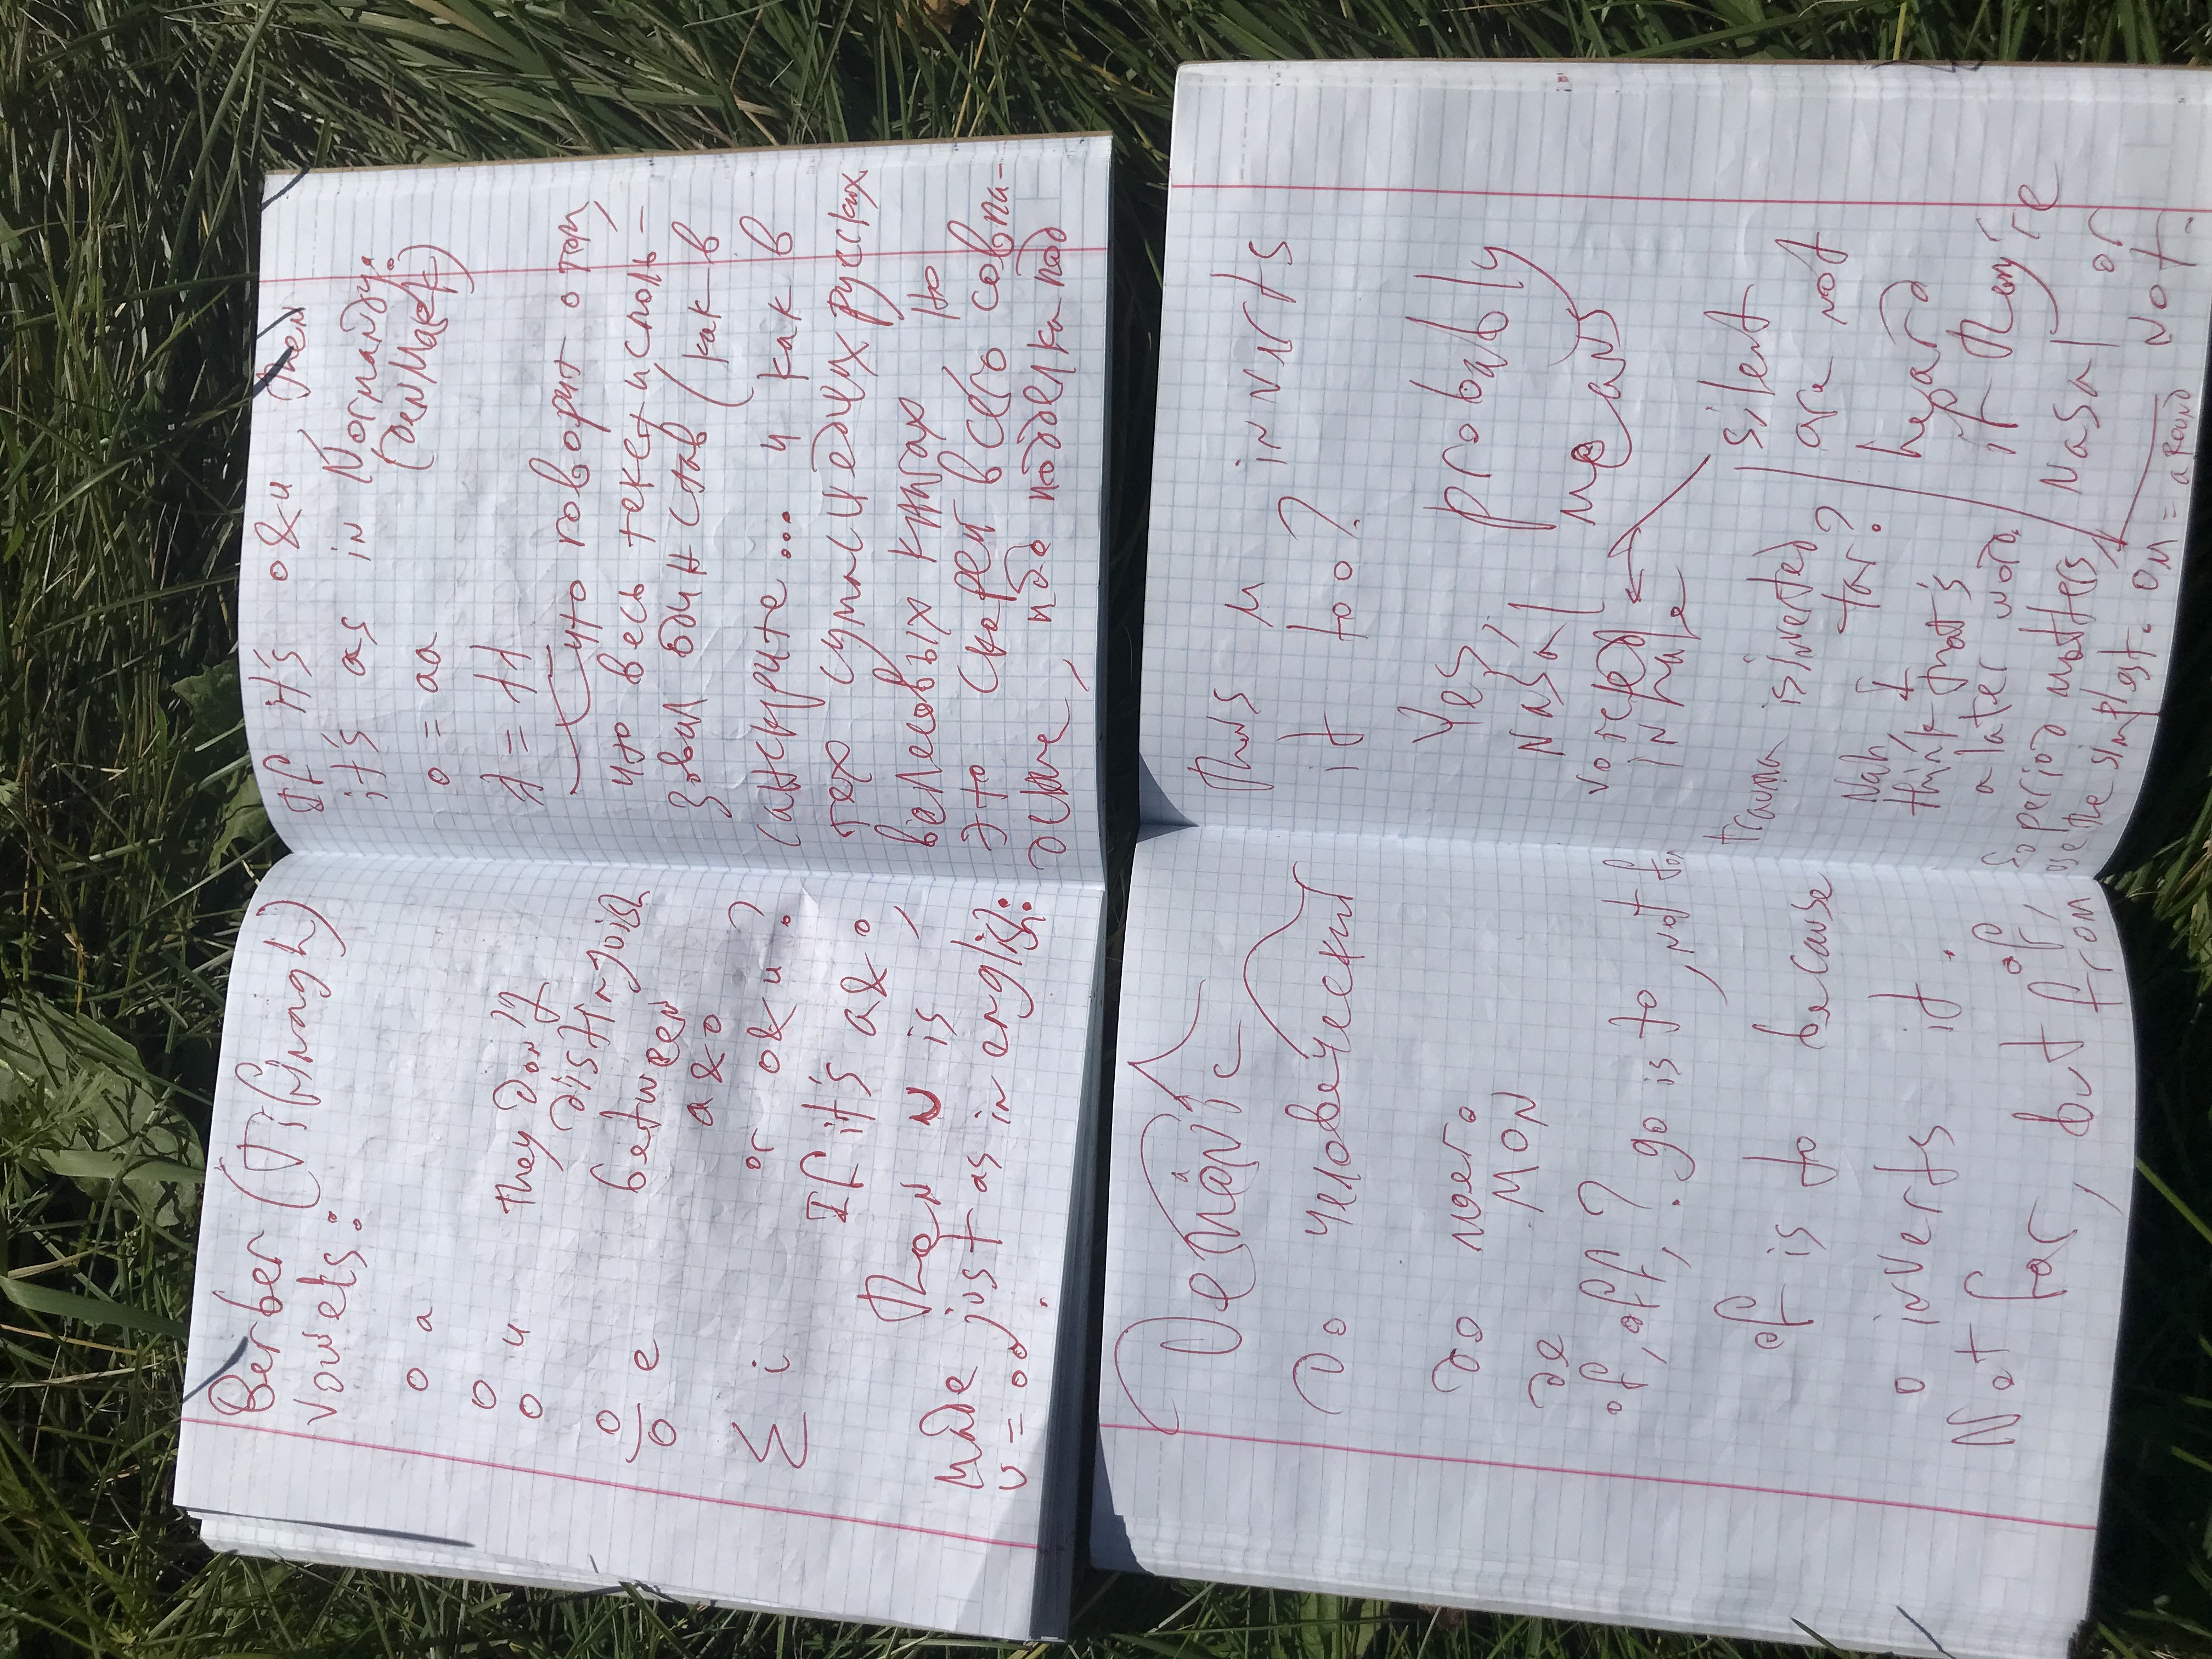 Berber (Tifinagh)
vowels:
o a
o
o u
they don't
distinguish
between
a & o
or o & u?
o
o e
Σ i
If it's a & o,
then u is
made just as in english:
u = oo.
If it's o & u, then
it's as in Normandy:
(Denmark)
o = aa
1 = 11
что говорит о том,
что весь текст исполь-
зовал один став (как в
санскрите... и как в
тех сумасшедших русских
велесовых книгах, но
это скорей всего совпа-
дение, ибо подделка под
Demonic
До человеческий
до моего
MON
де
of, off, ? go is to, not
of is to because
o inverts it.
Not far, but of,
from
Thus м inverts
it too?
Yes, probably
means
nasal
voiced
inhale
silent
are not
heard
if they're
nasal or
not.
trauma is inverted
tar?
Nah, I
think that's
a later word.
So period matters,
use the simplest.
OM = aROUND